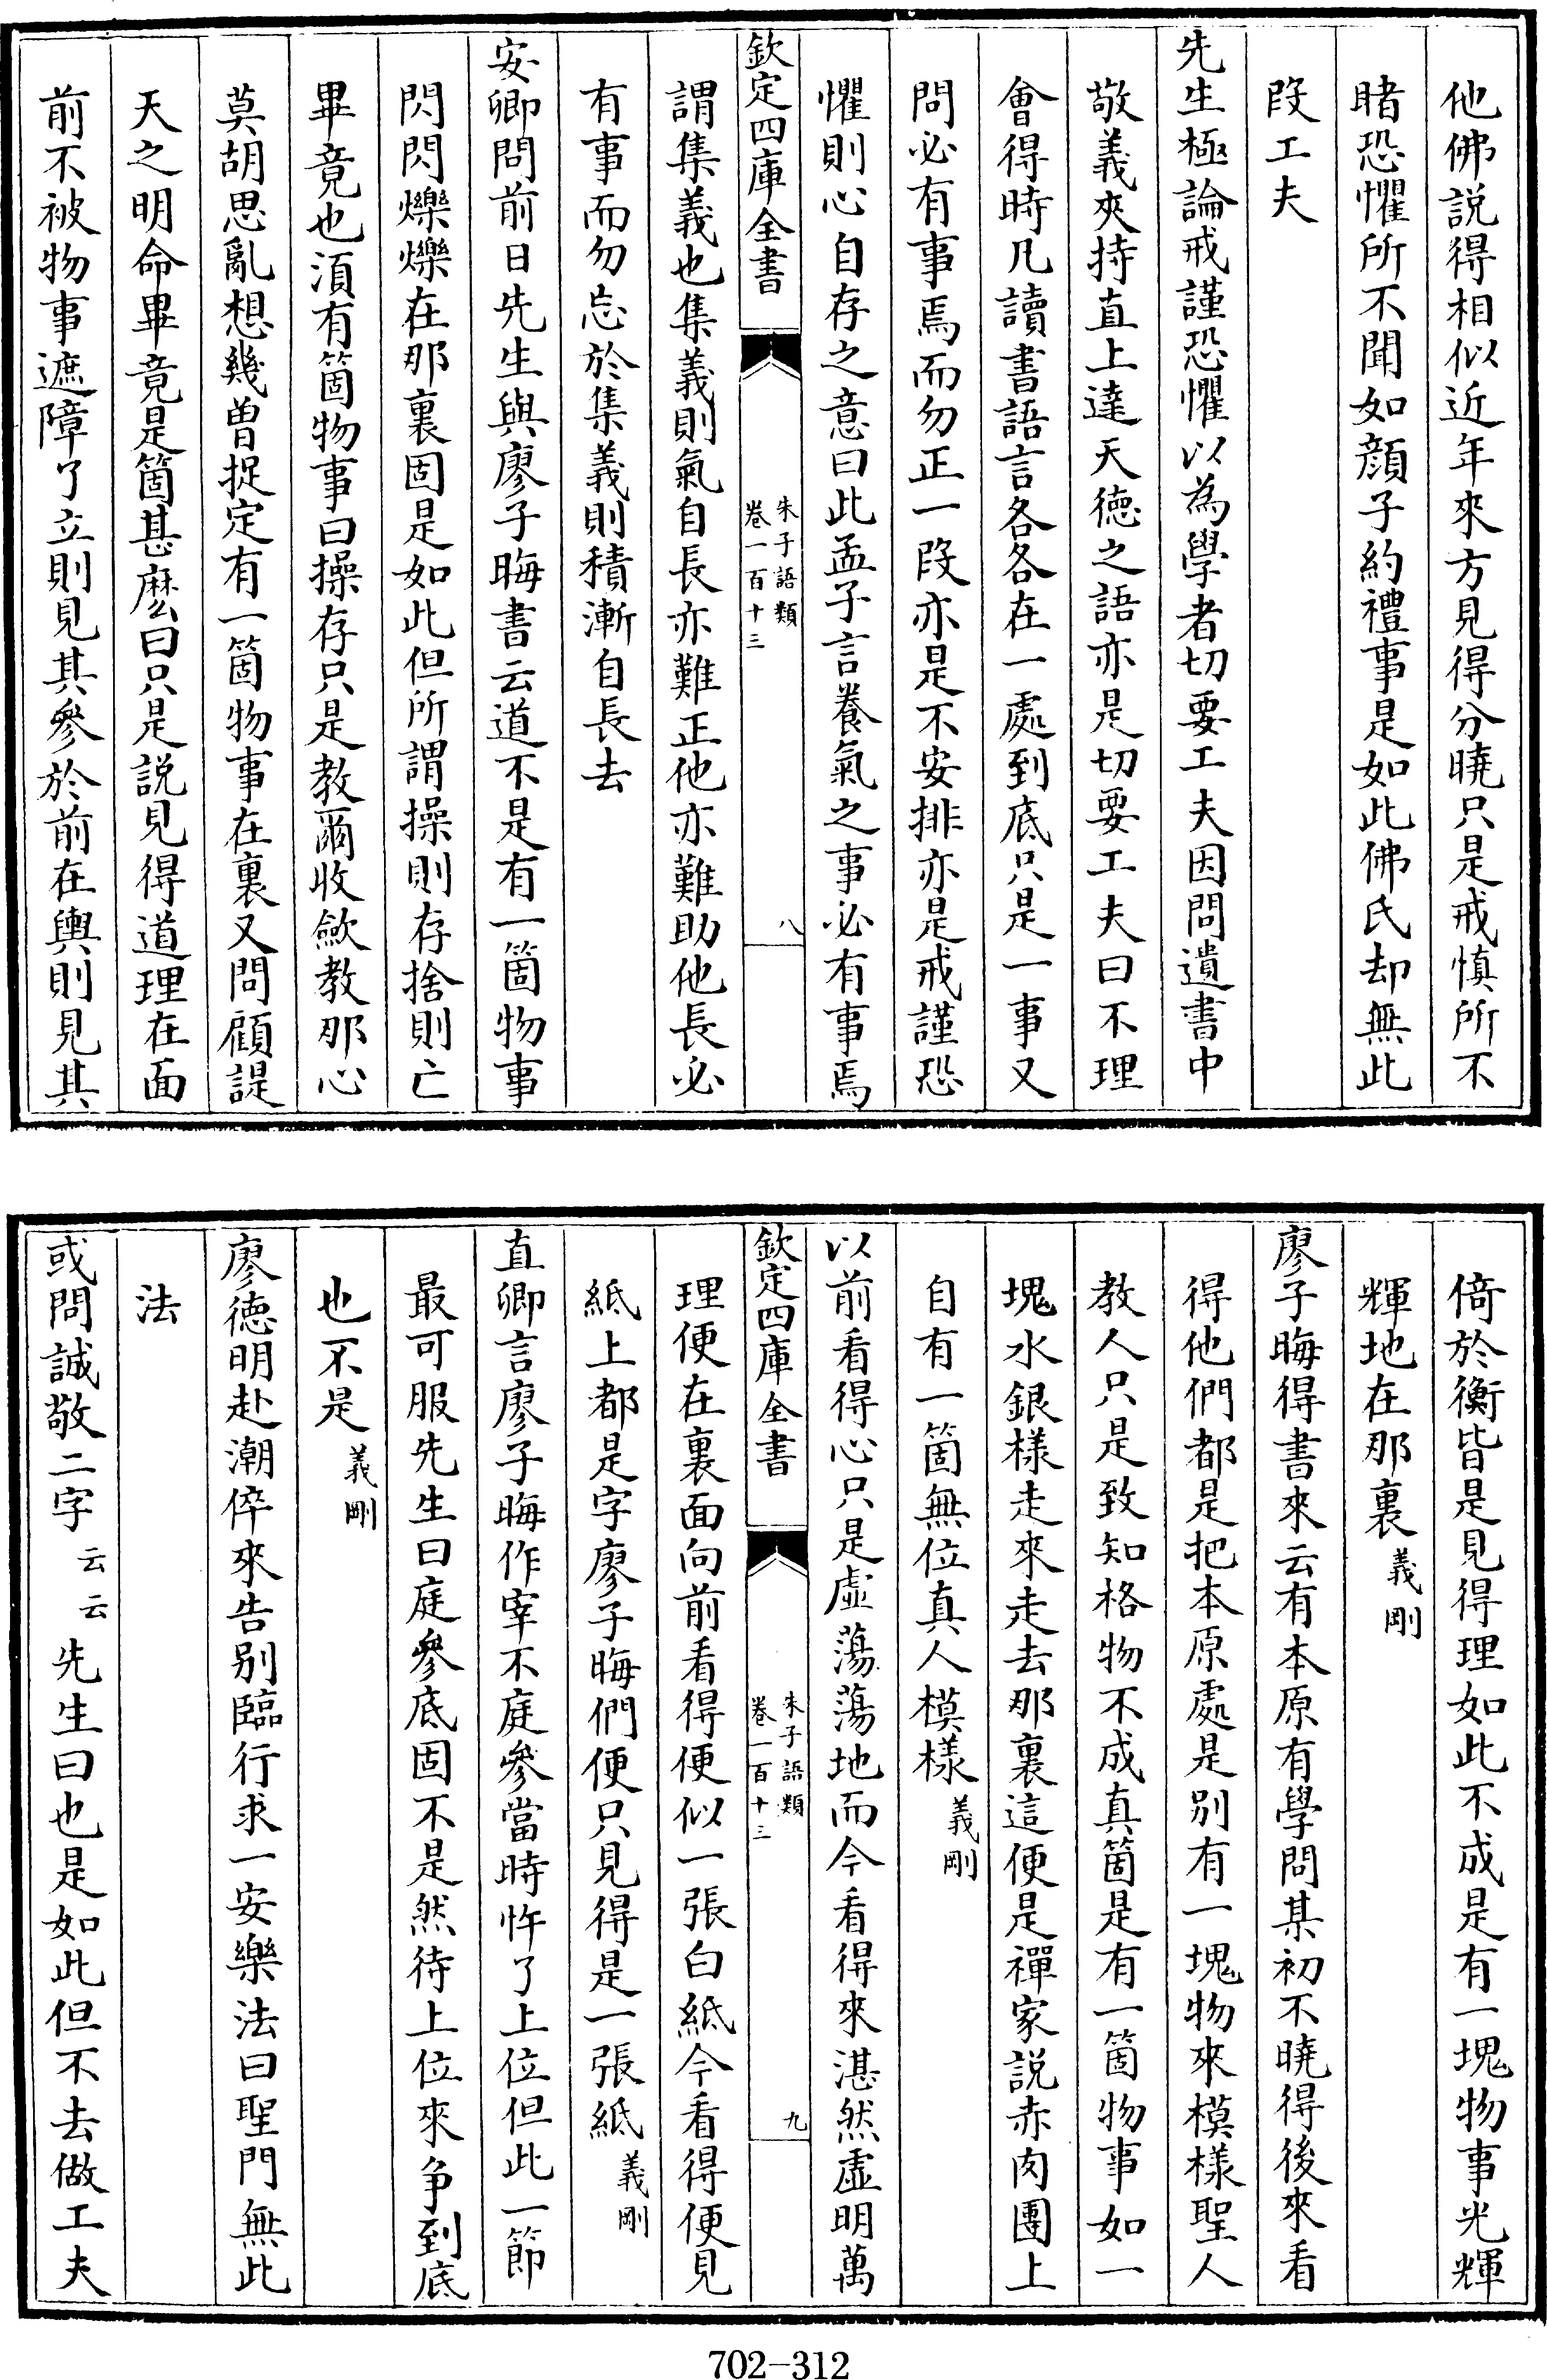 他佛説得相似近年來方見得分曉只是戒慎所不
睹恐懼所不聞如顔子約禮事是如此佛氏却無此
段工夫
先生極論戒謹恐懼以為學者切要工夫因問遺書中
敬義夾持直上達天德之語亦是切要工夫曰不理
會得時凡讀書語言各各在一處到底只是一事又
問必有事焉而勿正一段亦是不安排亦是戒謹恐
懼則心自存之意曰此孟子言養氣之事必有事焉
欽定四庫全書
朱子語類
卷一百十三
八
謂集義也集義則氣自長亦難正他亦難助他長必
有事而勿忘於集義則積漸自長去
安卿問前日先生與廖子晦書云道不是有一箇物事
閃閃爍爍在那裏固是如此但所謂操則存捨則亡
畢竟也湏有箇物事曰操存只是教爾收斂教那心
莫胡思亂想幾曽捉定有一箇物事在裏又問顧諟
天之明命畢竟是箇甚麽曰只是説見得道理在面
前不被物事遮障了立則見其參於前在輿則見其
倚於衡皆是見得理如此不成是有一塊物事光輝
輝地在那裏義剛
廖子晦得書來云有本原有學問某初不曉得後來看
得他們都是把本原處是别有一塊物來模樣聖人
教人只是致知格物不成真箇是有一箇物事如一
塊水銀樣走來走去那裏這便是禪家説赤肉團上
自有一箇無位真人模樣義剛
以前看得心只是虛蕩蕩地而今看得來湛然虛明萬
欽定四庫全書
朱子語類
卷一百十三
九
理便在裏面向前看得便似一張白紙今看得便見
紙上都是字廖子晦們便只見得是一張紙義剛
直卿言廖子晦作宰不庭參當時忤了上位但此一節
最可服先生曰庭參底固不是然待上位來爭到底
也不是義剛
廖德明赴潮倅來告别臨行求一安樂法曰聖門無此
法
或問誠敬二字云云先生曰也是如此但不去做工夫
702-312